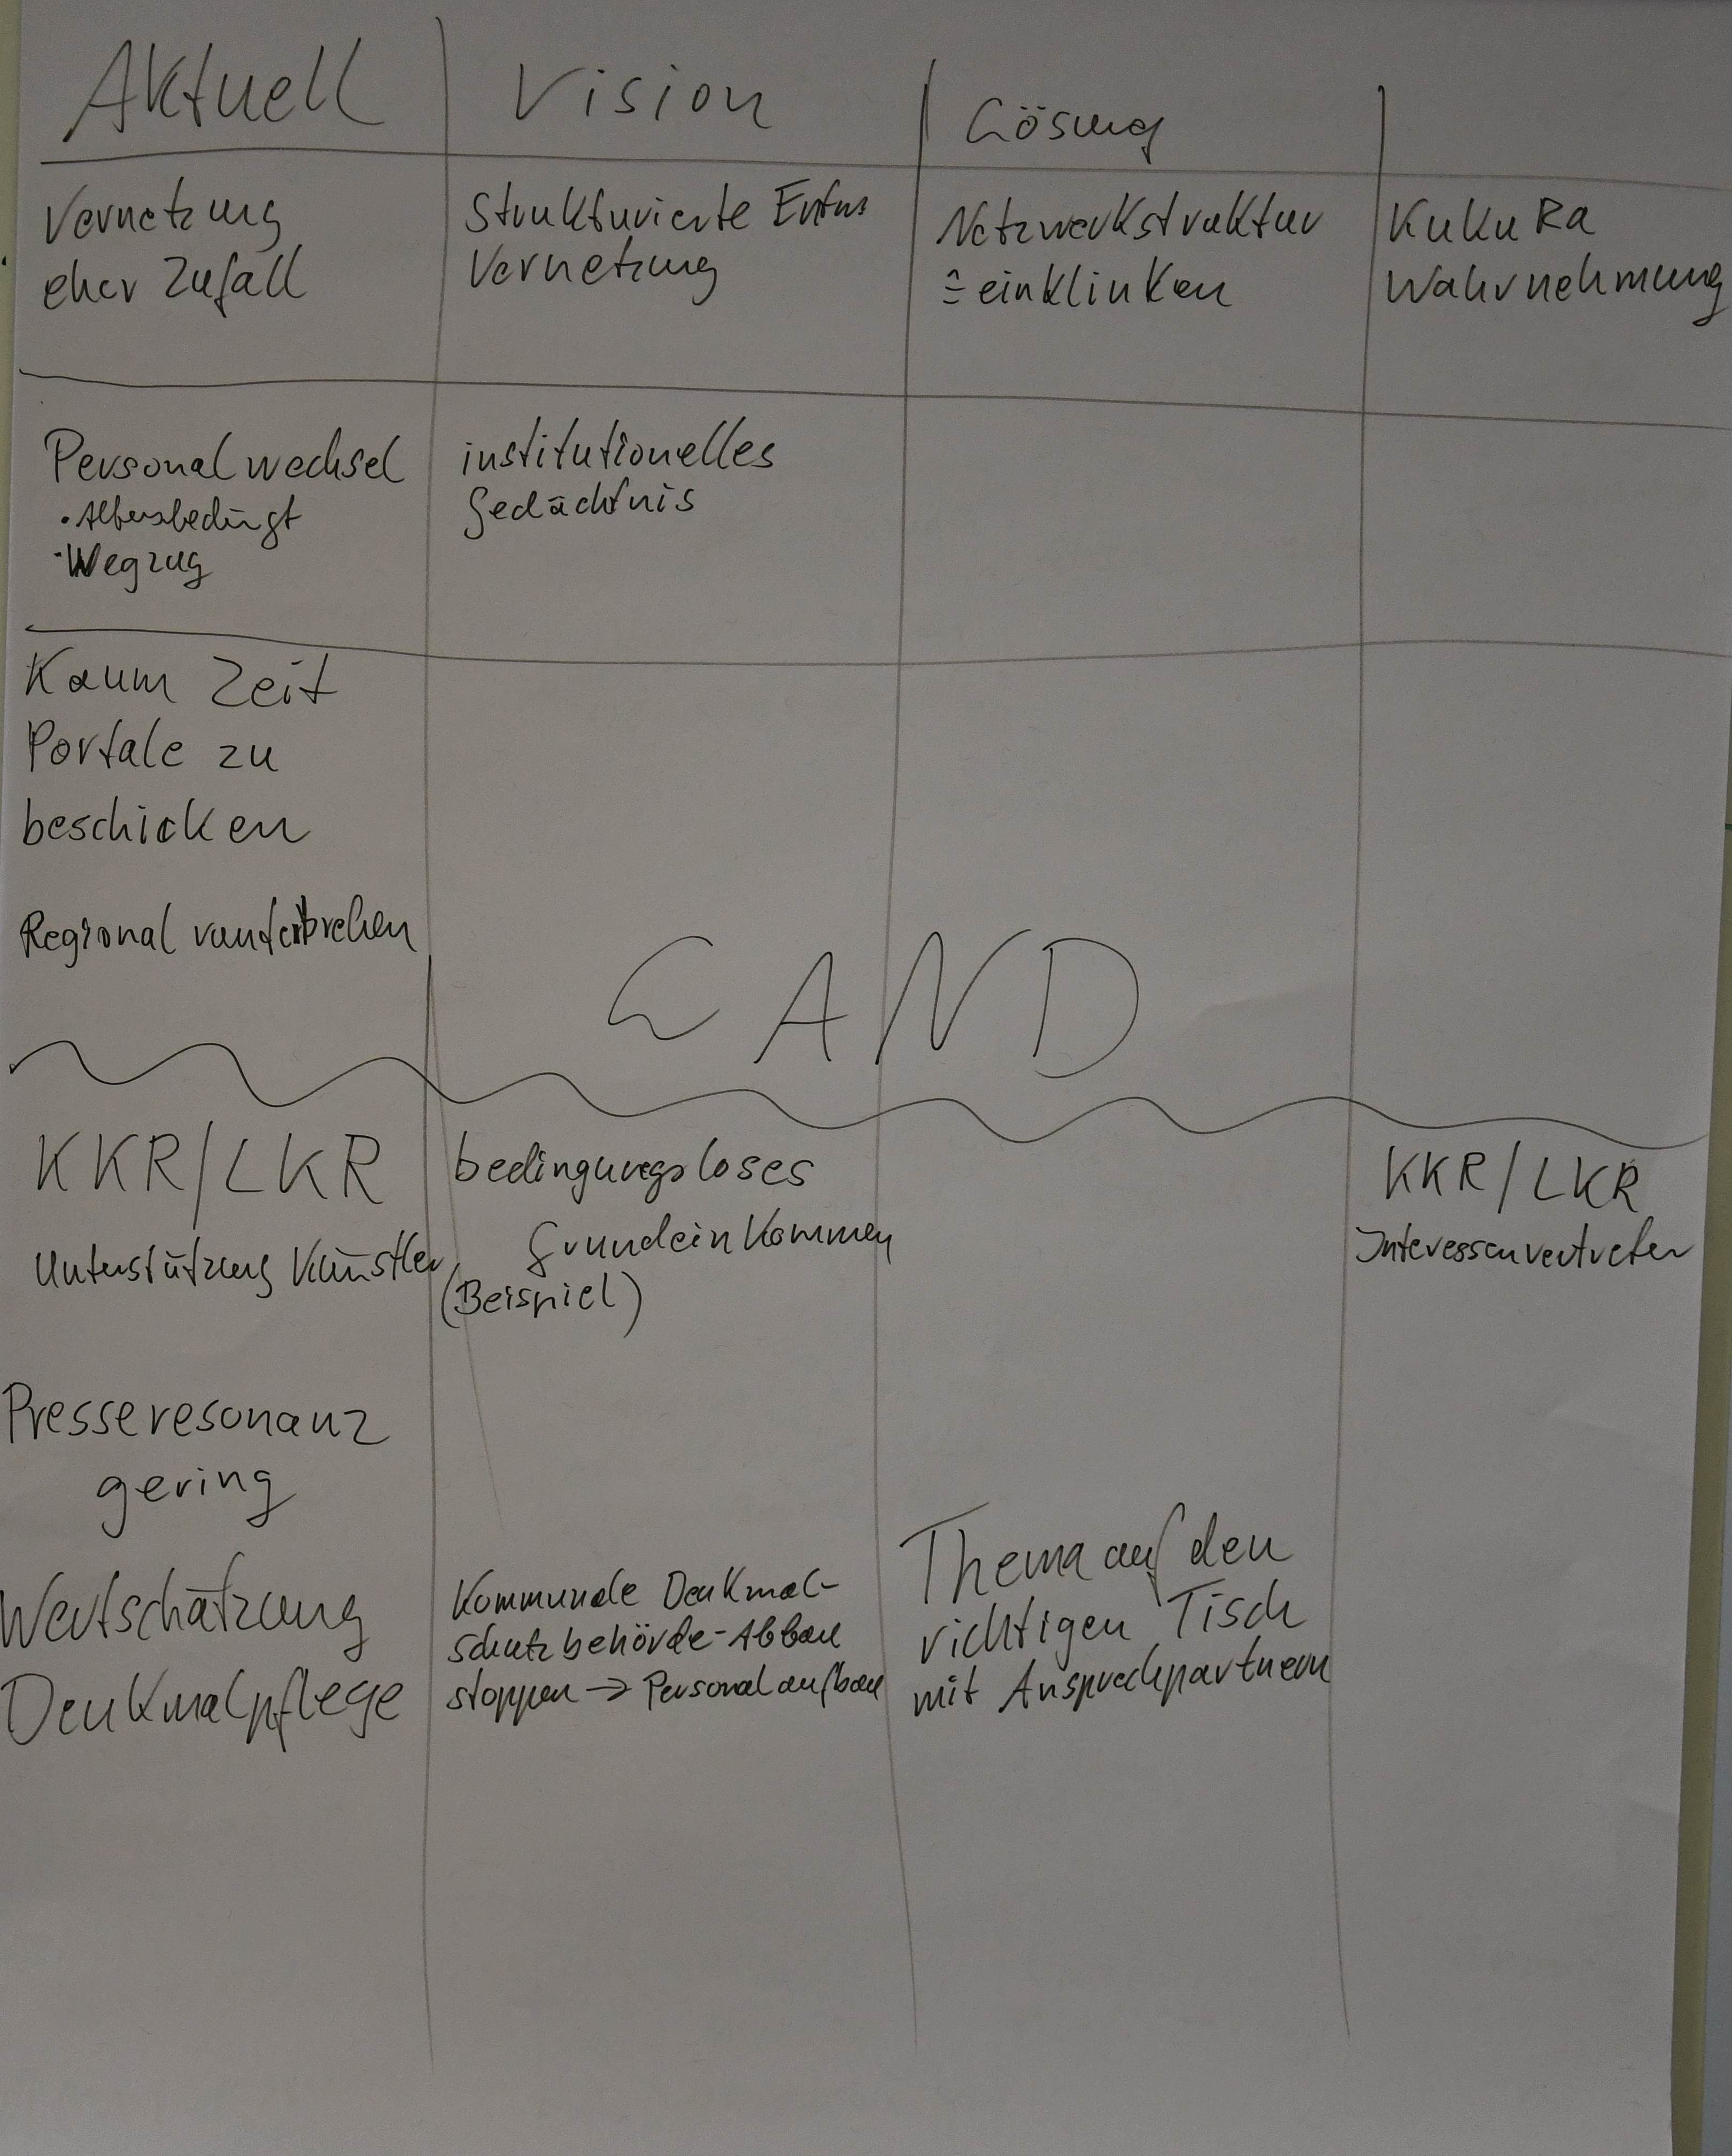 Aktuell
Vision
Lösung
Vernetzung
eher Zufall
Strukturierte
Vernetzung
Netzwerkstruktur
≙ einklinken
KuKuRa
Wahrnehmung
Personalwechsel
• Altersbedingt
• Wegzug
institutionelles
Gedächtnis
Kaum Zeit
Portale zu
beschicken
Regional runterbrechen
LAND
KKR/LKR
Unterstützung Künstler
bedingungsloses
Grundeinkommen
(Beispiel)
KKR/LKR
Interessenvertreter
Presseresonanz
gering
Wertschätzung
Denkmalpflege
Kommunale Denkmal-
schutzbehörde-Abbau
stoppen → Personalaufbau
Thema auf den
richtigen Tisch
mit Ansprechpartnern